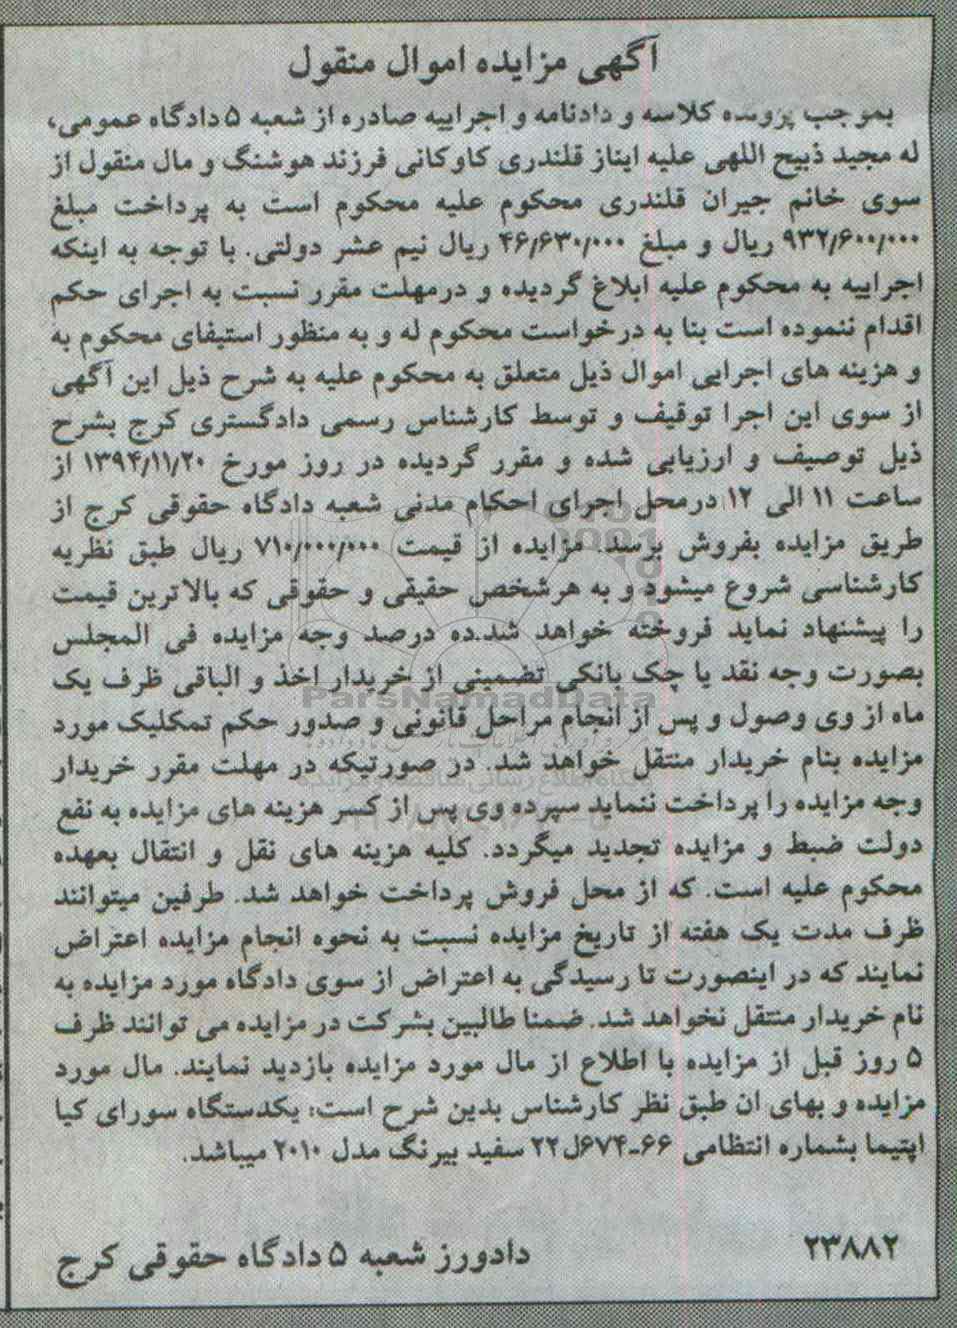 آگهی مزایده اموال منقول
بموجب پرونده کلاسه و دادنامه و اجراییه صادره از شعبه ۵ دادگاه عمومی،
له مجید ذبیح اللهی علیه ایناز قلندری کاوکانی فرزند هوشنگ و مال منقول از
سوی خانم جیران قلندری محکوم علیه محکوم است به پرداخت مبلغ
۹۳۲/۶۰۰/۰۰۰ ریال و مبلغ ۴۶/۶۳۰/۰۰۰ ریال نیم عشر دولتی. با توجه به اینکه
اجراییه به محکوم علیه ابلاغ گردیده و درمهلت مقرر نسبت به اجرای حکم
اقدام ننموده است بنا به درخواست محکوم له و به منظور استیفای محکوم به
و هزینه های اجرایی اموال ذیل متعلق به محکوم علیه به شرح ذیل این آگهی
از سوی این اجرا توقیف و توسط کارشناس رسمی دادگستری کرج بشرح
ذیل توصیف و ارزیابی شده و مقرر گردیده در روز مورخ ۱۳۹۴/۱۱/۲۰ از
ساعت ۱۱ الی ۱۲ درمحل اجرای احکام مدنی شعبه دادگاه حقوقی کرج از
طریق مزایده بفروش برسد. مزایده از قیمت ۷۱۰/۰۰۰/۰۰۰ ریال طبق نظریه
کارشناسی شروع میشود و به هرشخص حقیقی و حقوقی که بالاترین قیمت
را پیشنهاد نماید فروخته خواهد شد.ده درصد وجه مزایده فی المجلس
بصورت وجه نقد یا چک بانکی تضمینی از خریدار اخذ و الباقی ظرف یک
ParsNamadData
ماه از وی وصول و پس از انجام مراحل قانونی و صدور حکم تمکلیک مورد
مزایده بنام خریدار منتقل خواهد شد. در صورتیکه در مهلت مقرر خریدار
وجه مزایده را پرداخت ننماید سپرده وی پس از کسر هزینه های مزایده به نفع
دولت ضبط و مزایده تجدید میگردد. کلیه هزینه های نقل و انتقال بعهده
محکوم علیه است. که از محل فروش پرداخت خواهد شد. طرفین میتوانند
ظرف مدت یک هفته از تاریخ مزایده نسبت به نحوه انجام مزایده اعتراض
نمایند که در اینصورت تا رسیدگی به اعتراض از سوی دادگاه مورد مزایده به
نام خریدار منتقل نخواهد شد. ضمنا طالبین بشرکت در مزایده می توانند ظرف
۵ روز قبل از مزایده با اطلاع از مال مورد مزایده بازدید نمایند. مال مورد
مزایده و بهای ان طبق نظر کارشناس بدین شرح است: یکدستگاه سورای کیا
اپتیما بشماره انتظامی ۶۶-۶۷۴ل۲۲ سفید بیرنگ مدل ۲۰۱۰ میباشد.
۲۳۸۸۲
دادورز شعبه ۵ دادگاه حقوقی کرج